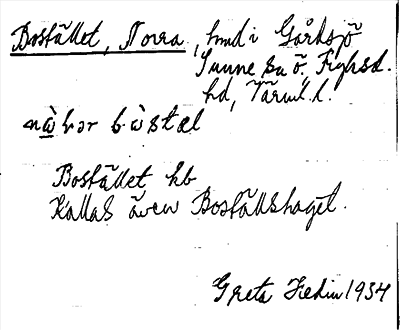 Bostället, Norra, hmd i Gårdsjö
Sunne sn ö. Fryksd.
hd, Värml. l.
nò̱rər bòstæl
Bostället kb
Kallas även Boställshaget.
Greta Hedin 1934